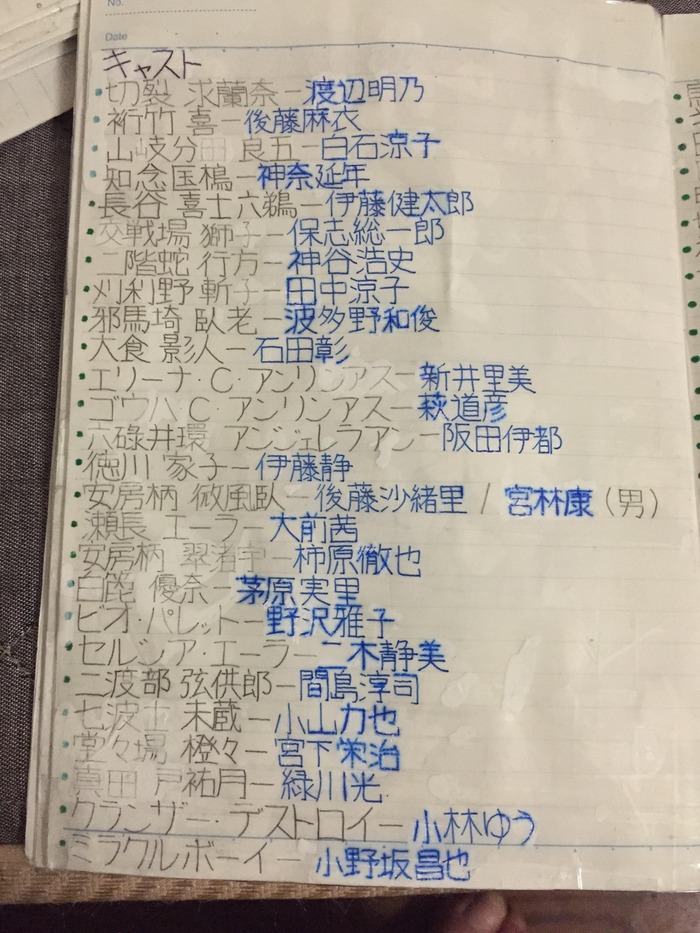 No.
Date
キャスト
切裂 求蘭奈ー渡辺明乃
裄竹 喜ー後藤麻衣
山岐分田 良五ー白石涼子
知念国槝ー神奈延年
長谷 喜士六鵜ー伊藤健太郎
交戦場 獅子ー保志総一郎
二階蛇 行方ー神谷浩史
刈利野 斬子ー田中涼子
邪馬埼 臥老ー波多野和俊
大食 影人ー石田彰
エリーナ・C・アンリンアスー新井里美
ゴウハ C・アンリンアスー萩道彦
六碌井環 アンジェレラアンー阪田伊都
徳川 家子ー伊藤静
安房柄 微風臥ー後藤沙緒里 / 宮林康(男)
瀬長 エーラー大前茜
安房柄 翠渚宇ー柿原徹也
白箆 優奈ー茅原実里
ビオ・パレットー野沢雅子
セルシア・エーラー二木静美
二渡部 弦供郎ー間島淳司
七波士 未蔵ー小山力也
堂々場 橙々ー宮下栄治
真田 戸祐月ー緑川光
クランザー・デストロイー小林ゆう
ミラクルボーイー 小野坂昌也